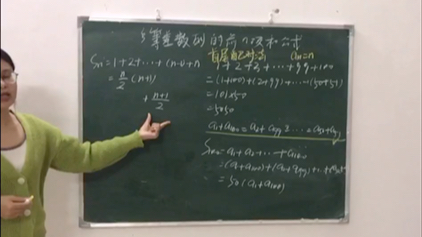 等差数列的前n项和公式
首尾配对法 an=n
Sn=1+2+…+(n-1)+n
= n/2 (n+1)
+ n+1/2
1+2+3+…+99+100
=(1+100)+(2+99)+…+(50+51)
=101×50
=5050
a1+a100=a2+a99=…=a50+a51
S100=a1+a2+…+a100
=(a1+a100)+(a2+a99)+…+
=50(a1+a100)